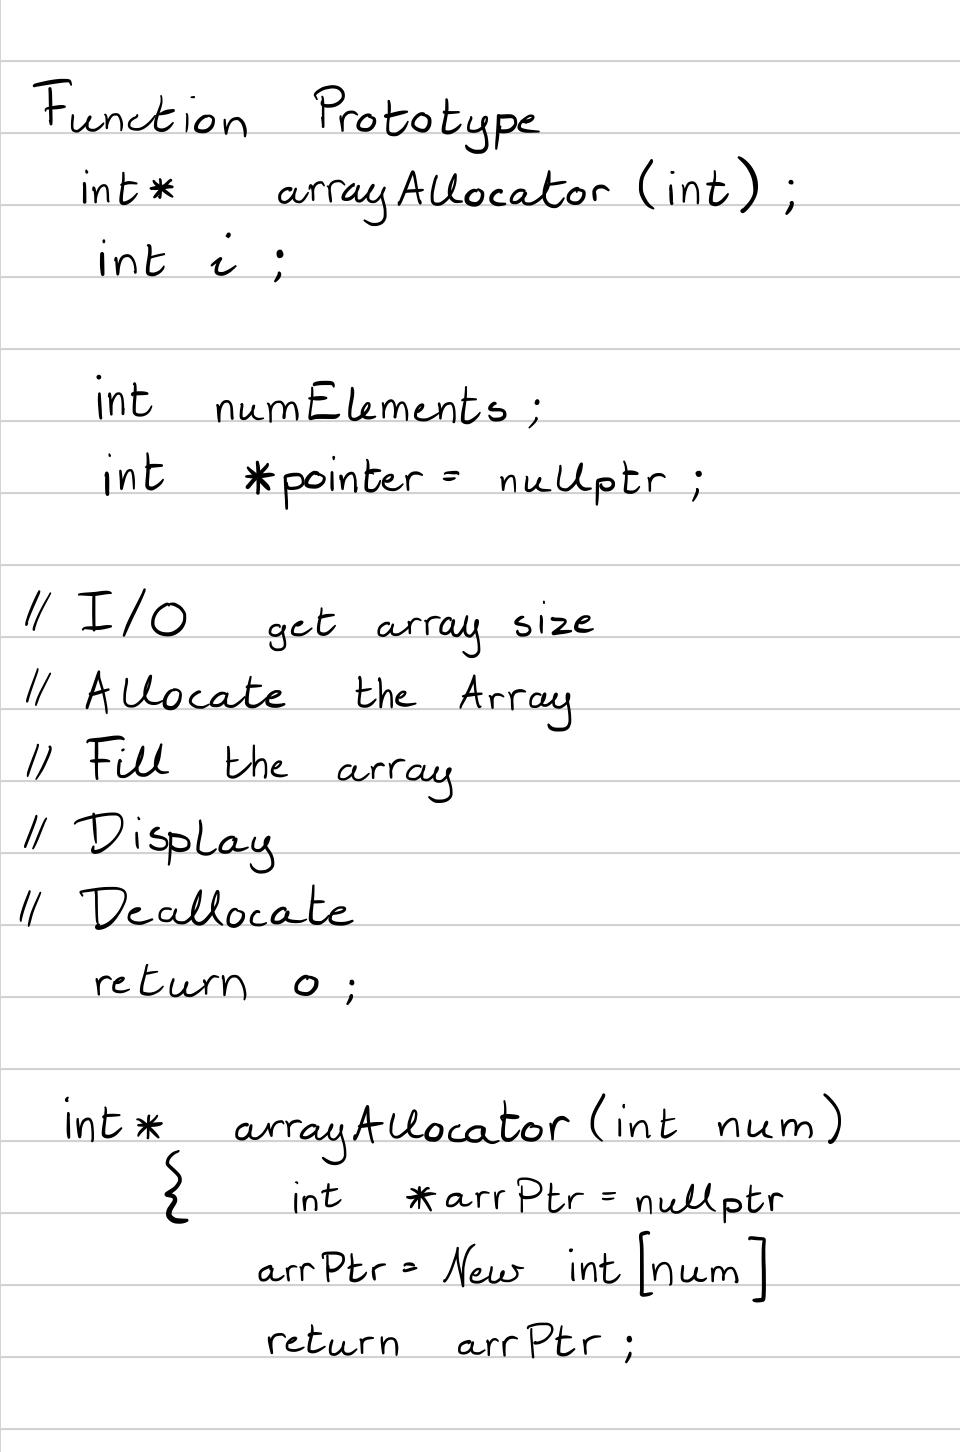 Function Prototype
int* arrayAllocator (int) ;
int i ;
int numElements ;
int *pointer = nullptr ;
// I/O get array size
// Allocate the Array
// Fill the array
// Display
// Deallocate
return 0 ;
int* arrayAllocator (int num)
{ int *arrPtr = nullptr
arrPtr = New int [num]
return arrPtr ;